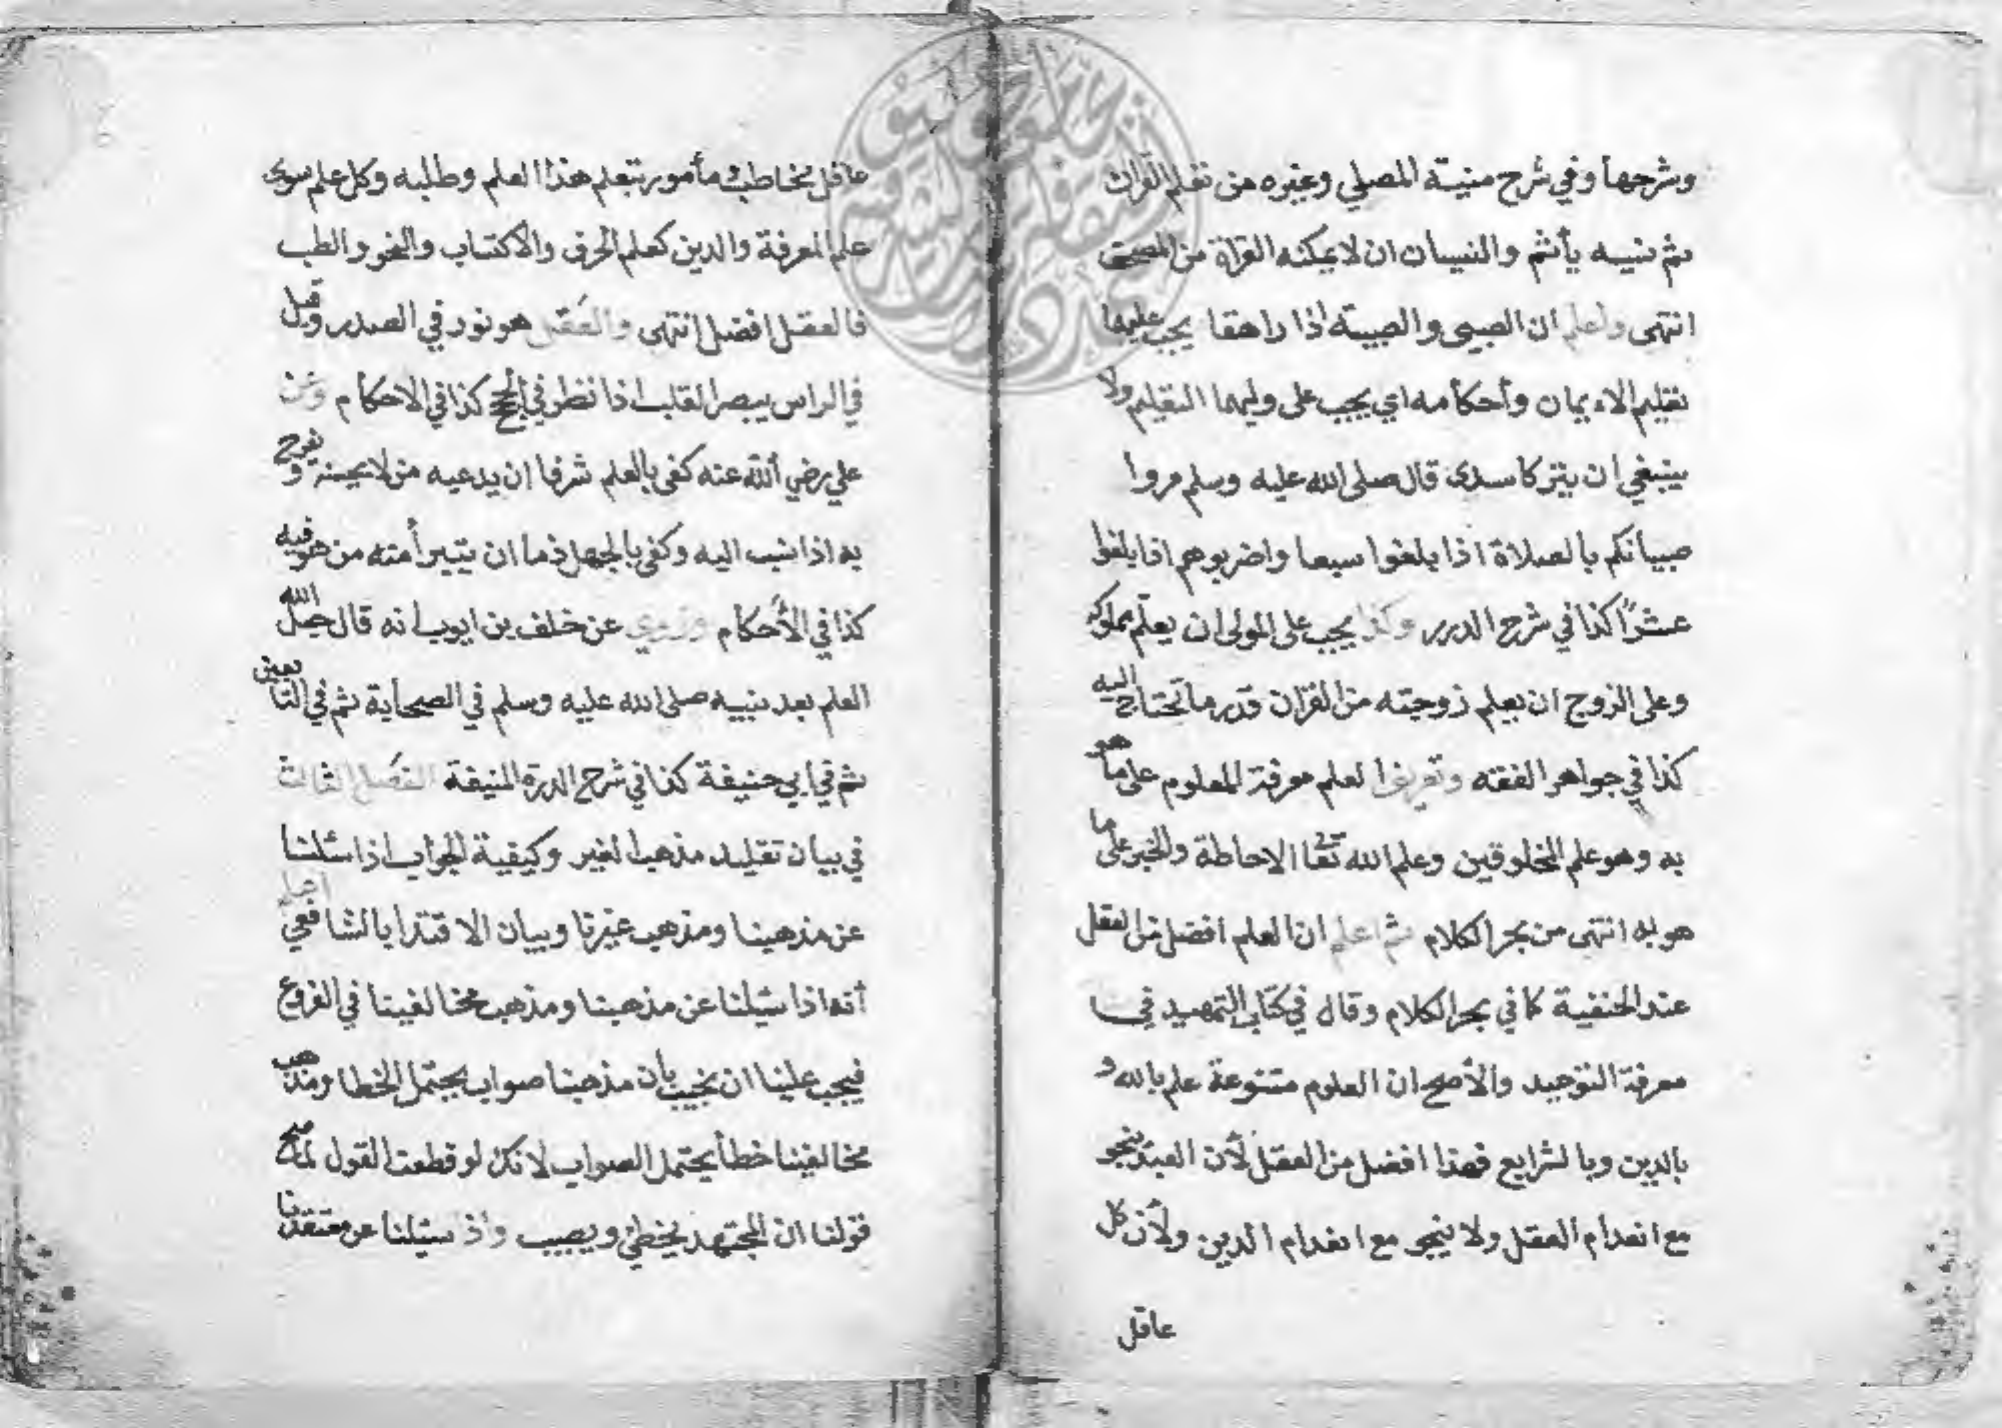 وشرحها وفي شرح منية المصلي وغيره من تعلم القرآن
ثم نسيه يأثم والنسيان ان لا يمكنه القراة من المصحف
انتهى واعلم ان الصبي والصبية اذا راهقا يجب عليهما
تعليم الايمان وأحكامه اي يجب على وليهما التعليم ولا
ينبغي ان يتركا سدى قال صلى الله عليه وسلم مروا
صبيانكم بالصلاة اذا بلغوا سبعا واضربوهم اذا بلغوا
عشرًا كذا في شرح الدرر وكذا يجب على المولى ان يعلّم مملوكه
وعلى الزوج ان يعلم زوجته من القران قدر ما تحتاج اليه
كذا في جواهر الفقه وتعريف العلم معرفة المعلوم على ما هو
به وهو علم المخلوقين وعلم الله تعا الاحاطة والخبر على ما
هو به انتهى من بحر الكلام ثم اعلم ان العلم افضل من العقل
عند الحنفية كما في بحر الكلام وقال في كتاب التمهيد في
معرفة التوحيد والأصح ان العلوم متنوعة علم بالله و
بالدين وبالشرايع فهذا افضل من العقل لأن العبد ينجو
مع انعدام العقل ولا ينجو مع انعدام الدين ولأن كل
عاقل
عاقل مخاطب مأمور بتعلم هذا العلم وطلبه وكل علم سوى
علم المعرفة والدين كعلم الحرف والاكتساب والنحو والطب
فالعقل افضل انتهى والعقل هو نور في الصدر وقيل
في الراس يبصر القلب اذا نظر في الحجج كذا في الاحكام وعن
علي رضي الله عنه كفى بالعلم شرفا ان يدعيه من لا يحسنه ويفرح
به اذا نسب اليه وكفى بالجهل ذما ان يتبرأ منه من هو فيه
كذا في الأحكام وروي عن خلف بن ايوب انه قال جعل الله
العلم بعد نبيه صلى الله عليه وسلم في الصحابة ثم في التابعين
ثم في ابي حنيفة كذا في شرح الدرة المنيفة الفصل الثالث
في بيان تقليد مذهب الغير وكيفية الجواب اذا سئلنا
عن مذهبنا ومذهب غيرنا وبيان الاقتدا بالشافعي اعلم
أنه اذا سئلنا عن مذهبنا ومذهب مخالفينا في الفروع
فيجب علينا ان نجيب بأن مذهبنا صواب يحتمل الخطا ومذهب
مخالفينا خطأ يحتمل الصواب لانك لو قطعت القول لما صح
قولنا ان المجتهد يخطئ ويصيب واذا سئلنا عن معتقدنا